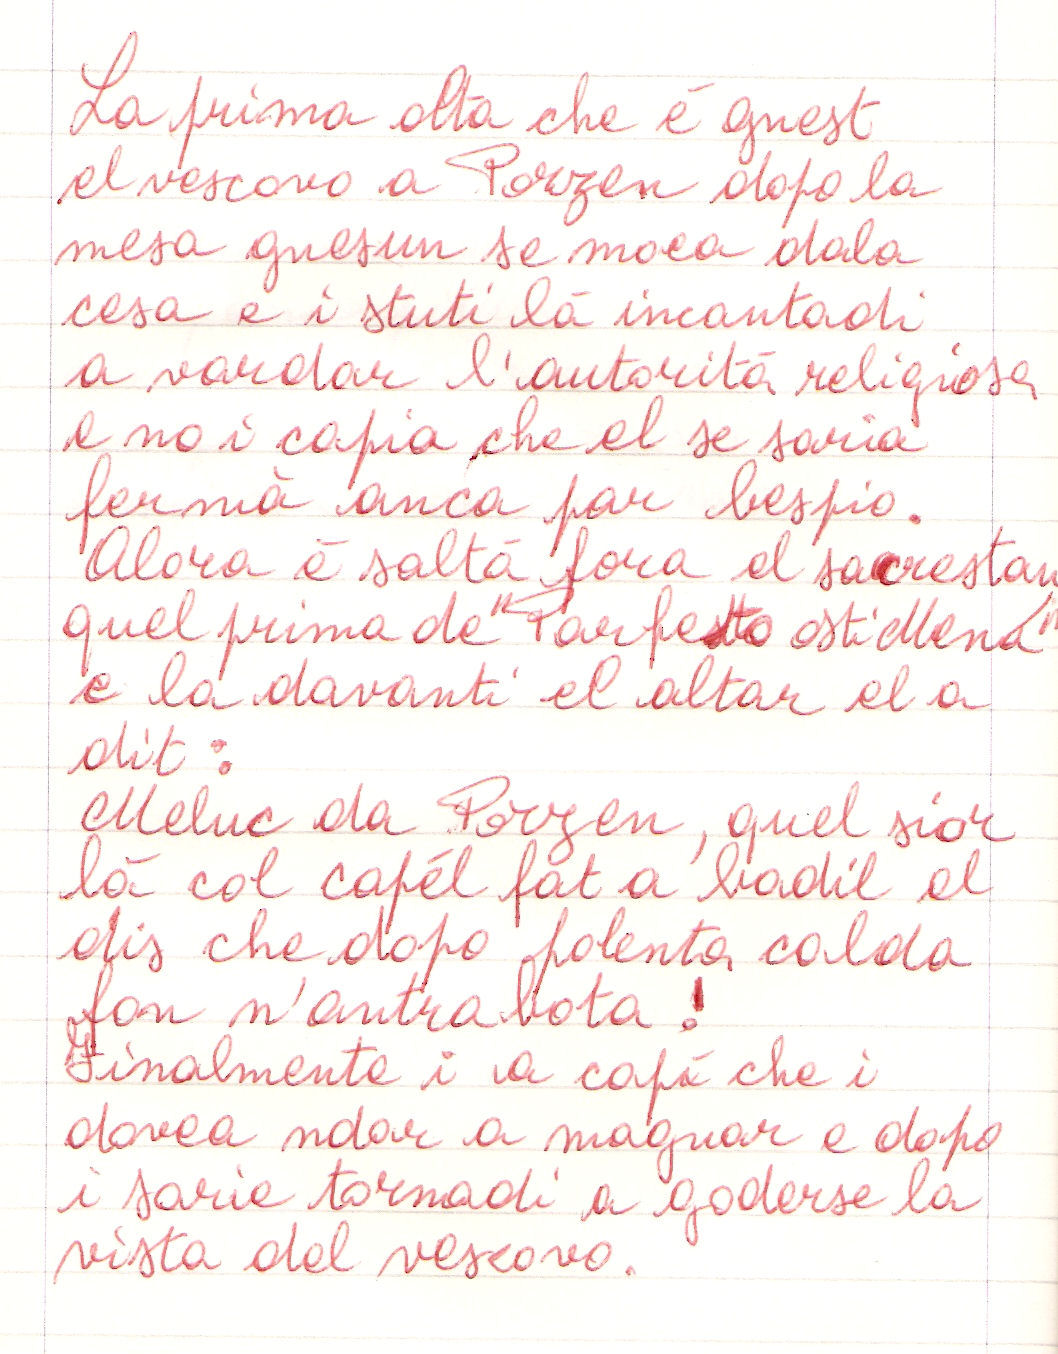 La prima olta che è gnest
el vescovo a Porzen dopo la
mesa gnesun se moea dala
cesa e i stuti là incantadi
a vardar l'autorità religiosa
e no i capia che el se saria
fermà anca par bespio.
Alora è saltà fora el sacrestan
quel prima de "Parfetto ostiMena"
e la davanti el altar el a
dit:
Meluc da Pòrzen, quel siór
là col capél fat a badil el
dis che dopo polenta calda
fon n'antra bota!
Finalmente i a capì che i
dovea ndar a magnar e dopo
i sarie tornadi a goderse la
vista del vescovo.